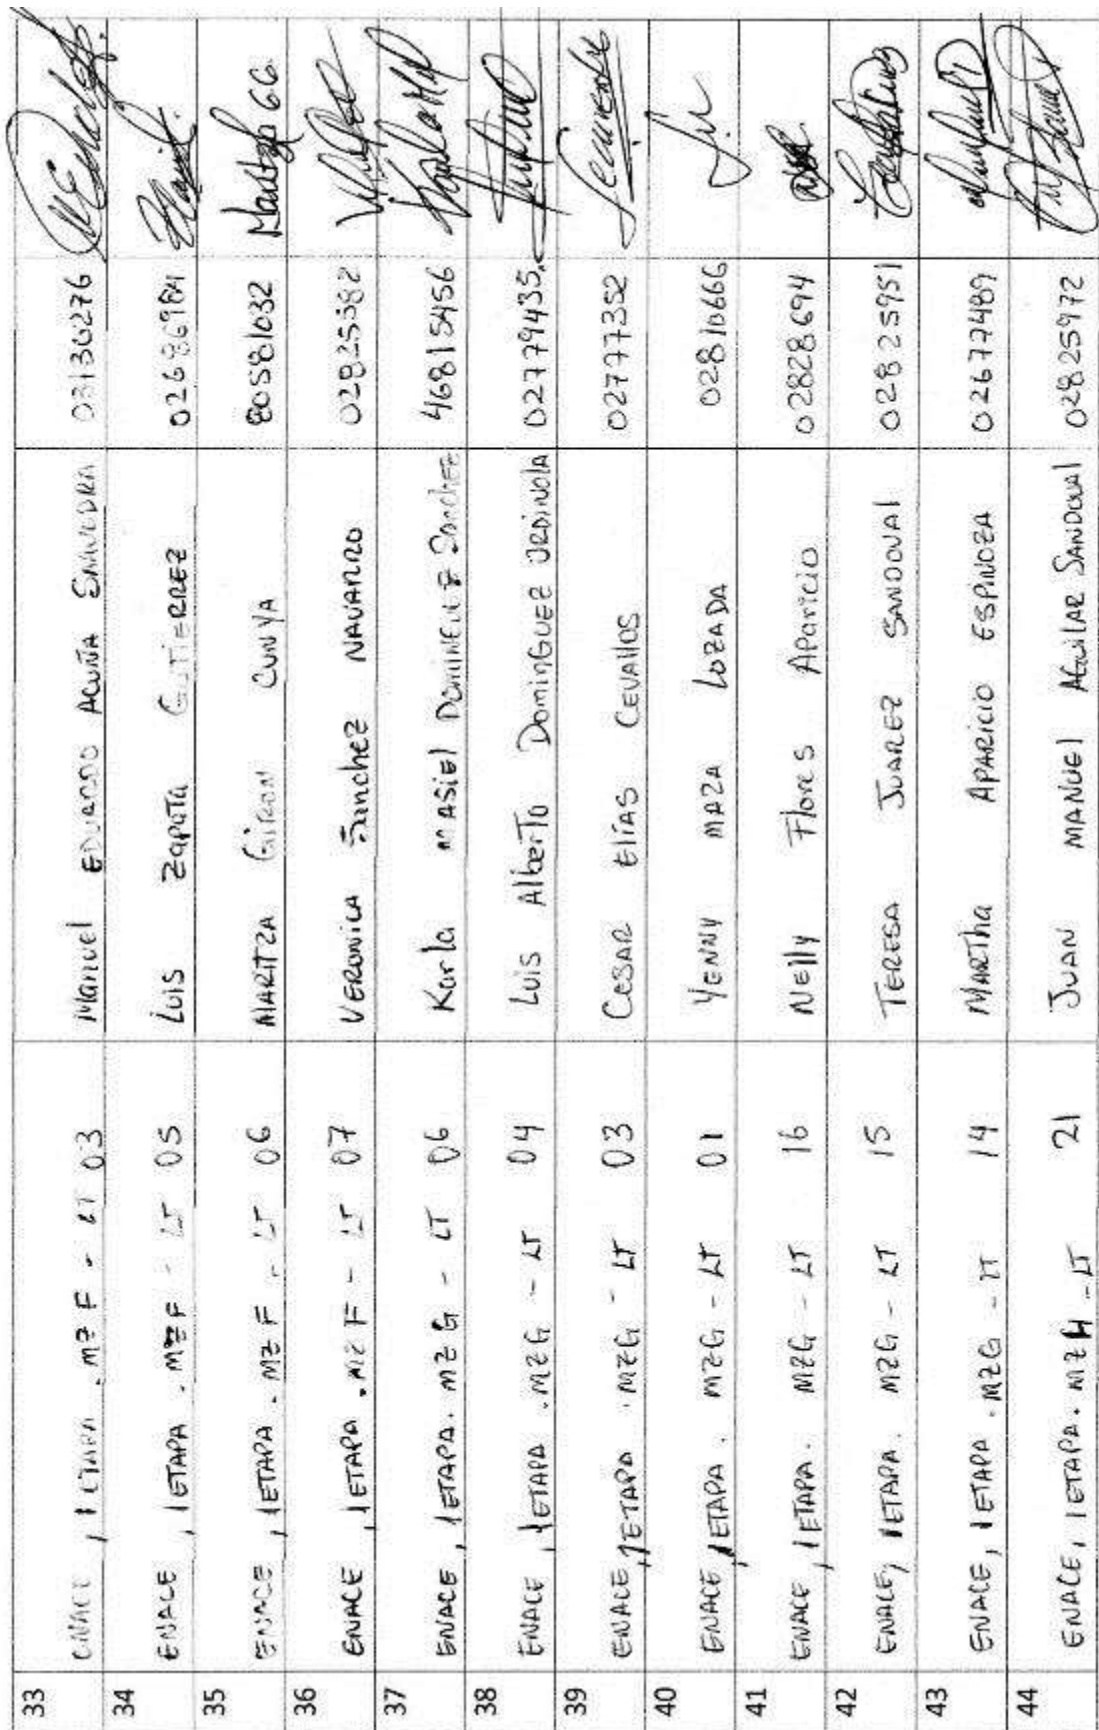 33 ENACE, 1 ETAPA. MZ F - LT 03 Manuel EDUARDO ACUÑA SAAVEDRA 03136276
34 ENACE, 1 ETAPA. MZ F - LT 05 LUIS ZAPATA GUTIERREZ 02686984
35 ENACE, 1 ETAPA. MZ F - LT 06 MARITZA GIRON CUNYA 80581032 Maritza GG.
36 ENACE, 1 ETAPA. MZ F - LT 07 VERONICA Sanchez NAVARRO 02825382
37 ENACE, 1 ETAPA. MZ G - LT 06 Karla MASIEL DOMINGUEZ Sanchez 46815456
38 ENACE, 1 ETAPA. MZ G - LT 04 Luis AlberTo DominGUEZ URDINOLA 02779435
39 ENACE, 1 ETAPA. MZ G - LT 03 CESAR ElíAS CEVAllOS 02777352
40 ENACE, 1 ETAPA. MZ G - LT 01 YENNY MAZA LOZADA 02810666
41 ENACE, 1 ETAPA. MZ G - LT 16 NEllY Flores APARICIO 02828694
42 ENACE, 1 ETAPA. MZ G - LT 15 TERESA JUAREZ SANDOVAl 02825951
43 ENACE, 1 ETAPA. MZ G - LT 14 MARTha APARICIO ESPINOZA 02677489
44 ENACE, 1 ETAPA. MZ H - LT 21 JUAN MANUEl AGUILAR SANDOVAl 02825972